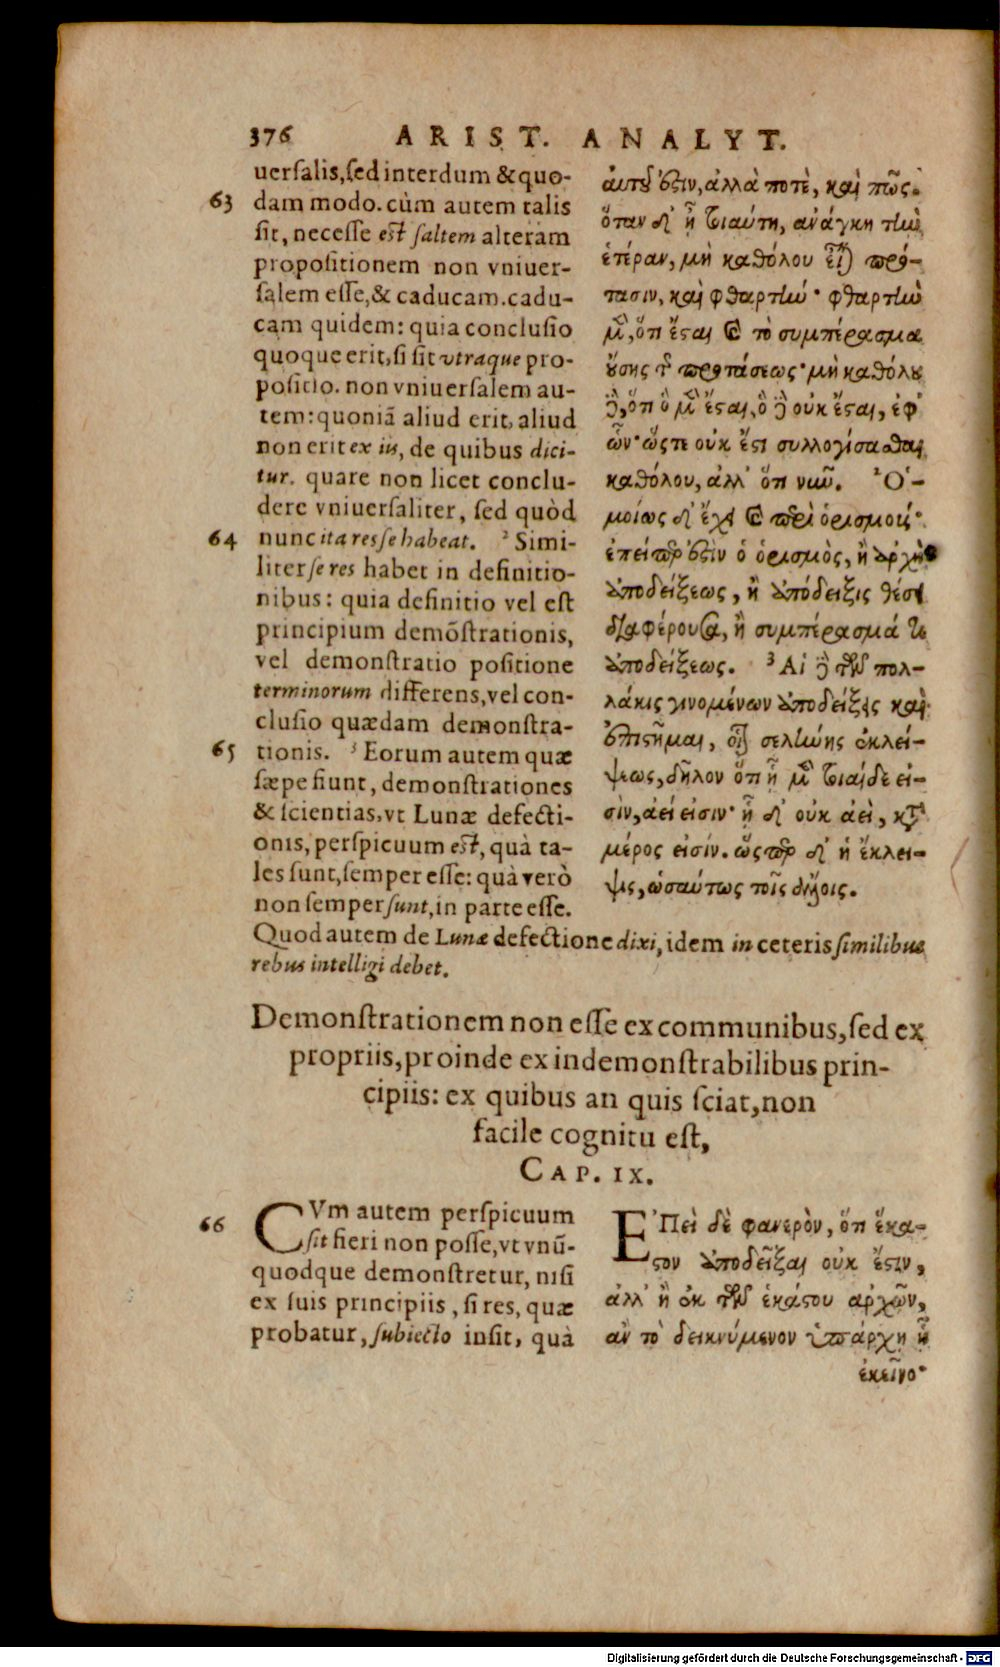 376 ARIST. ANALYT.
uersalis, sed interdum & quo-
63 dam modo. cùm autem talis
sit, necesse est saltem alteram
propositionem non vniuer-
salem esse, & caducam. cadu-
cam quidem: quia conclusio
quoque erit, si sit vtraque pro-
positio. non vniuersalem au-
tem: quoniã aliud erit, aliud
non erit ex iis, de quibus dici-
tur. quare non licet conclu-
dere vniuersaliter, sed quòd
64 nunc ita res se habeat. ² Simi-
liter se res habet in definitio-
nibus: quia definitio vel est
principium demõstrationis,
vel demonstratio positione
terminorum differens, vel con-
clusio quædam demonstra-
65 tionis. ³ Eorum autem quæ
sæpe fiunt, demonstrationes
& scientias, vt Lunæ defecti-
onis, perspicuum est, quà ta-
les sunt, semper esse: quà verò
non semper sunt, in parte esse.
Quod autem de Lunæ defectione dixi, idem in ceteris similibus
rebus intelligi debet.
αὐτοῦ ἐστιν, ἀλλὰ ποτὲ, καὶ πῶς.
ὅταν δ' ᾖ τοιαύτη, ἀνάγκη τὴν
ἑτέραν, μὴ καθόλου εἶναι πρό-
τασιν, καὶ φθαρτήν· φθαρτὴν
μὲν, ὅτι ἔσται καὶ τὸ συμπέρασμα
οὔσης τῆς προτάσεως· μὴ καθόλου
δὲ, ὅτι ὃ μὲν ἔσται, ὃ δὲ οὐκ ἔσται, ἐφ'
ὧν· ὥστε οὐκ ἔστι συλλογίσασθαι
καθόλου, ἀλλ' ὅτι νῦν. ² Ὁ-
μοίως δ' ἔχει καὶ περὶ ὁρισμούς·
ἐπείπερ ἐστὶν ὁ ὁρισμὸς, ἢ ἀρχὴ
ἀποδείξεως, ἢ ἀπόδειξις θέσει
διαφέρουσα, ἢ συμπέρασμά τι
ἀποδείξεως. ³ Αἱ δὲ τῶν πολ-
λάκις γινομένων ἀποδείξεις καὶ
ἐπιστῆμαι, οἷον σελήνης ἐκλεί-
ψεως, δῆλον ὅτι ᾗ μὲν τοιαίδε εἰ-
σὶν, ἀεί εἰσιν· ᾗ δ' οὐκ ἀεὶ, κατὰ
μέρος εἰσίν. ὥσπερ δ' ἡ ἔκλει-
ψις, ὡσαύτως τοῖς ἄλλοις.
Demonstrationem non esse ex communibus, sed ex
propriis, proinde ex indemonstrabilibus prin-
cipiis: ex quibus an quis sciat, non
facile cognitu est,
CAP. IX.
66 CVm autem perspicuum
sit fieri non posse, vt vnũ-
quodque demonstretur, nisi
ex suis principiis, si res, quæ
probatur, subiecto insit, quà
ἘΠεὶ δὲ φανερὸν, ὅτι ἕκα-
στον ἀποδεῖξαι οὐκ ἔστιν,
ἀλλ' ἢ ἐκ τῶν ἑκάστου ἀρχῶν,
ἂν τὸ δεικνύμενον ὑπάρχῃ ᾗ
ἐκεῖνο·
Digitalisierung gefördert durch die Deutsche Forschungsgemeinschaft - DFG